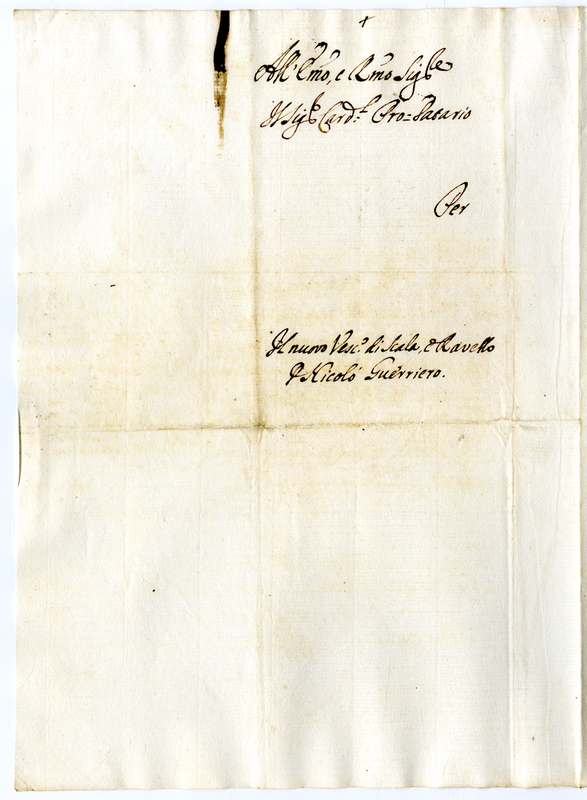 +
All' Em̃o, e Rm̃o Sig.re
Il Sig.r Card.l Pro=Datario
Per
Il nuovo Vesc.o di Scala, e Ravello
P Nicolò Guerriero.